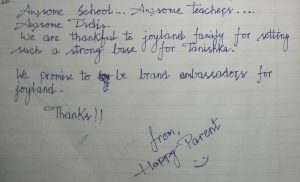 Awsome School... Awsome teachers....
Awsome Didis.
We are thankful to joyland family for setting
such a strong base for Tanishka.
We promise to be brand ambassadors for
joyland.
Thanks!!
from,
Happy Parent